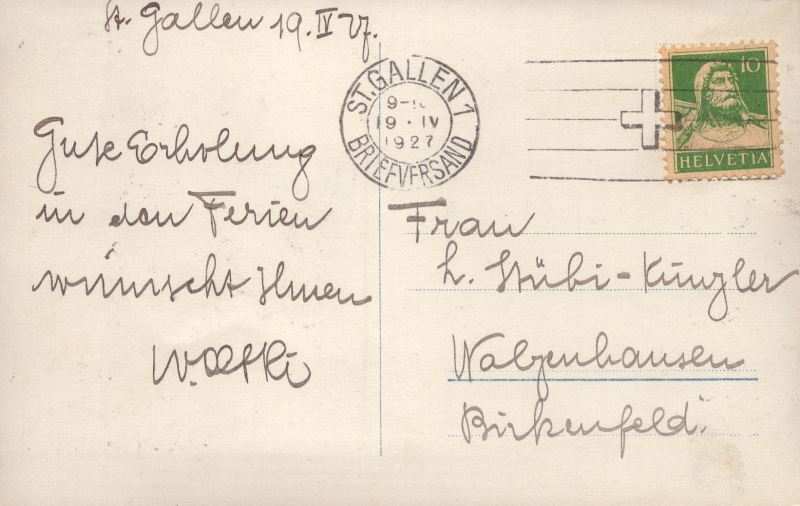 St. Gallen 19. IV 27.
Gute Erholung
in den Ferien
wünscht Ihnen
ST. GALLEN 1
9-
19 · IV
1927
BRIEFVERSAND
10
HELVETIA
Frau
L. Stübi-Künzler
Walzenhausen
Birkenfeld.